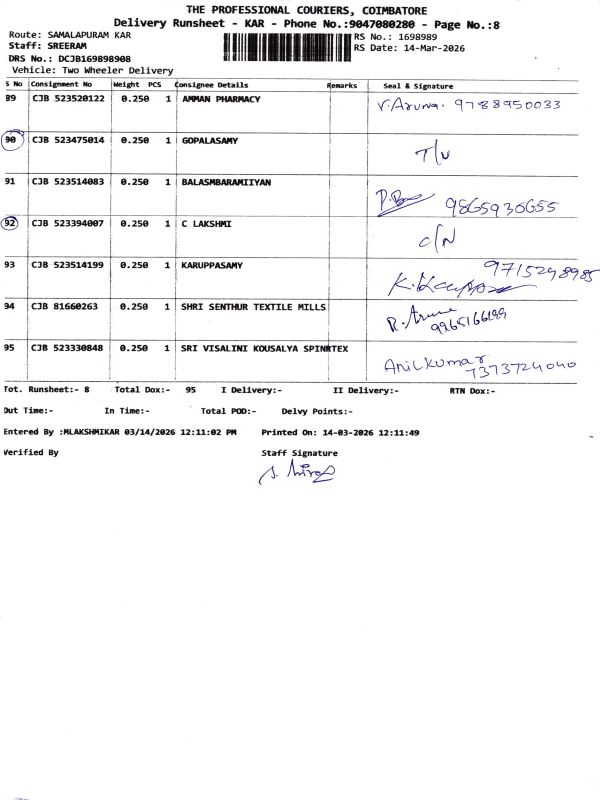 THE PROFESSIONAL COURIERS, COIMBATORE
Delivery Runsheet - KAR - Phone No.:9047080280 - Page No.:8
Route: SAMALAPURAM KAR
RS No.: 1698989
Staff: SREERAM
RS Date: 14-Mar-2026
DRS No.: DCJB169898908
Vehicle: Two Wheeler Delivery
S No Consignment No Weight PCS Consignee Details Remarks Seal & Signature
89 CJB 523520122 0.250 1 AMMAN PHARMACY V. Aruna. 9788950033
90 CJB 523475014 0.250 1 GOPALASAMY T/U
91 CJB 523514083 0.250 1 BALASMBARAMIIYAN 9865930655
92 CJB 523394007 0.250 1 C LAKSHMI C/N
93 CJB 523514199 0.250 1 KARUPPASAMY 9715298985
94 CJB 81660263 0.250 1 SHRI SENTHUR TEXTILE MILLS R. Arun 9965166199
95 CJB 523330848 0.250 1 SRI VISALINI KOUSALYA SPINRTEX Anilkumar 7373724040
Tot. Runsheet:- 8 Total Dox:- 95 I Delivery:- II Delivery:- RTN Dox:-
Out Time:- In Time:- Total POD:- Delvy Points:-
Entered By :MLAKSHMIKAR 03/14/2026 12:11:02 PM Printed On: 14-03-2026 12:11:49
Verified By Staff Signature